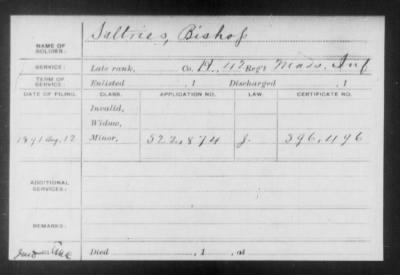 NAME OF SOLDIER: Saltries, Bishop
SERVICE: Late rank, Co. H, 42 Reg't Mass. Inf
TERM OF SERVICE: Enlisted , 1 Discharged , 1
DATE OF FILING. CLASS. APPLICATION NO. LAW. CERTIFICATE NO.
Invalid,
Widow,
1891 Aug. 12 Minor, 522,874 J. 396,496
ADDITIONAL SERVICES:
REMARKS:
Died , 1 , at